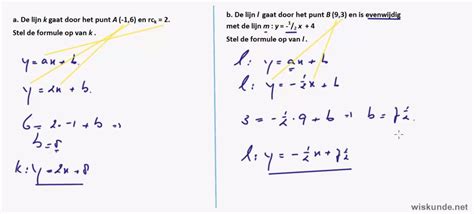 a. De lijn k gaat door het punt A (-1,6) en rcₖ = 2.
Stel de formule op van k.
y = ax + b.
y = 2x + b.
6 = 2 · -1 + b ⇒
b = 8
k: y = 2x + 8
b. De lijn l gaat door het punt B (9,3) en is evenwijdig
met de lijn m : y = -½ x + 4
Stel de formule op van l.
l: y = ax + b
l: y = -½x + b
3 = -½ · 9 + b ⇒ b = 7½.
l: y = -½x + 7½
wiskunde.net